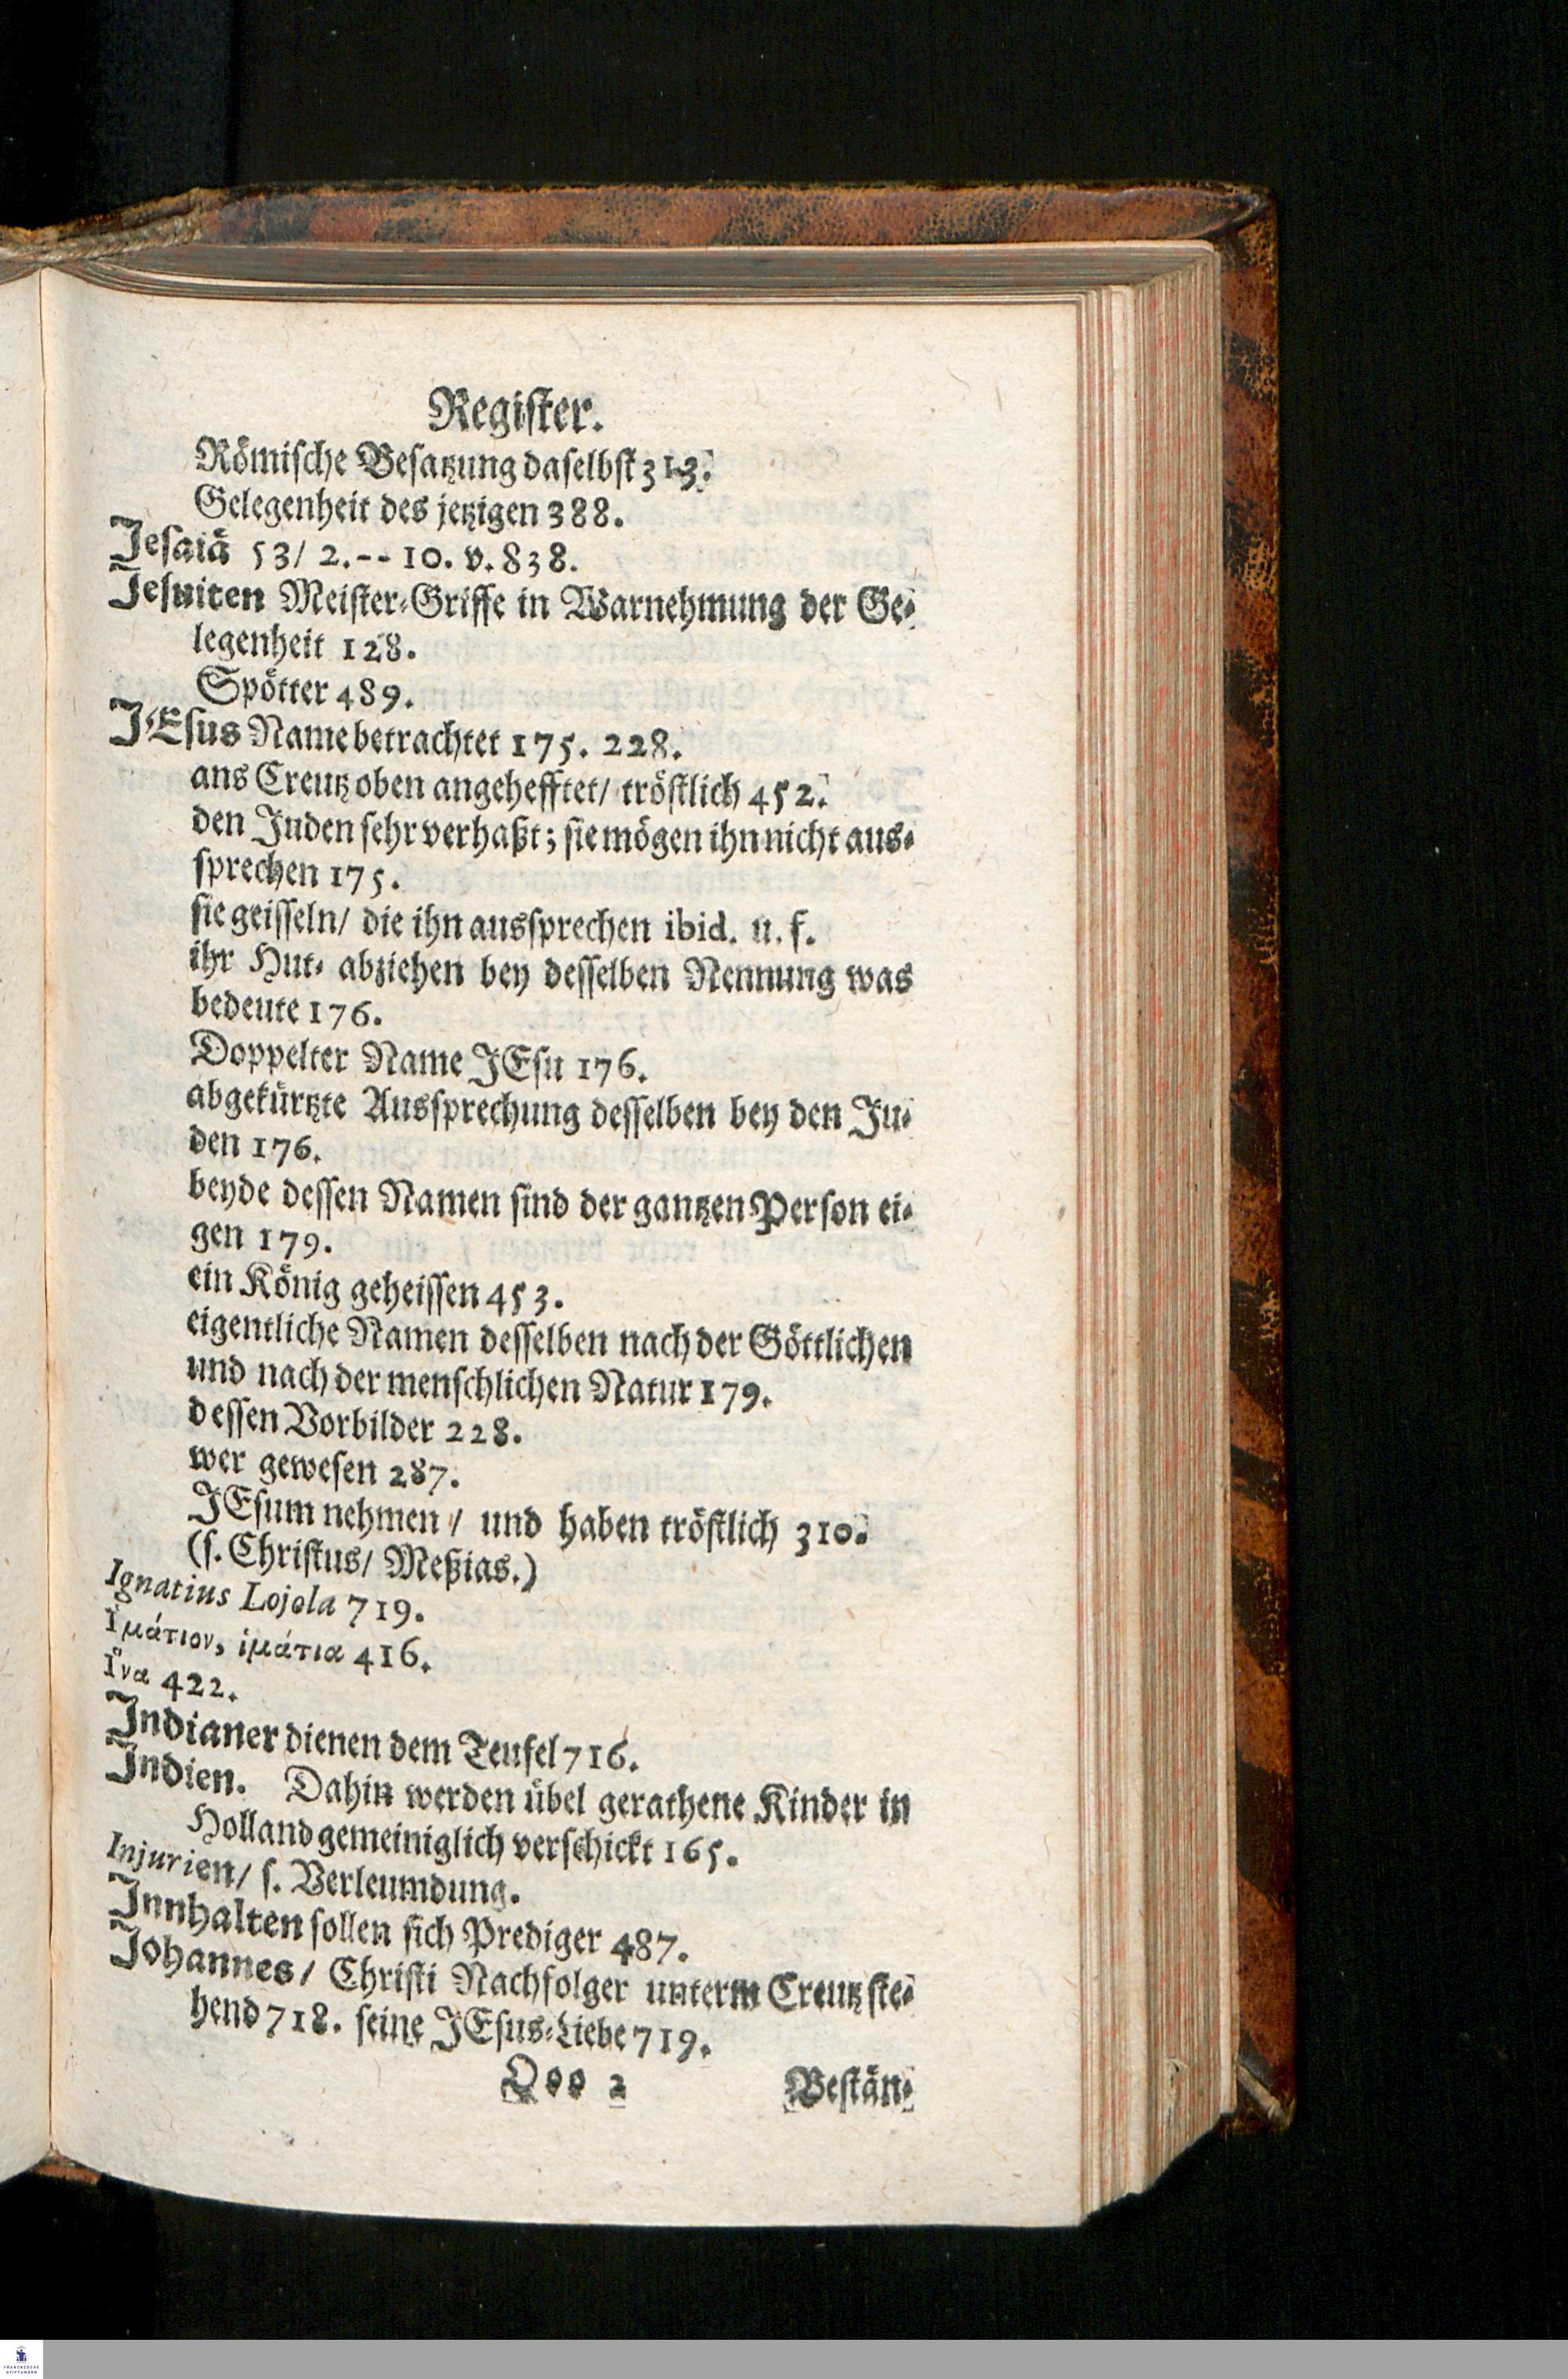 Register.
Römische Besatzung daselbst 313.
Gelegenheit des jetzigen 388.
Jesaiä 53/ 2.-- 10. v. 838.
Jesuiten Meister-Griffe in Warnehmung der Ge-
legenheit 128.
Spötter 489.
JEsus Name betrachtet 175. 228.
ans Creutz oben angehefftet/ tröstlich 452.
den Juden sehr verhaßt; sie mögen ihn nicht aus-
sprechen 175.
sie geisseln/ die ihn aussprechen ibid. u. f.
ihr Hut- abziehen bey desselben Nennung was
bedeute 176.
Doppelter Name JEsu 176.
abgekürtzte Aussprechung desselben bey den Ju-
den 176.
beyde dessen Namen sind der gantzen Person ei-
gen 179.
ein König geheissen 453.
eigentliche Namen desselben nach der Göttlichen
und nach der menschlichen Natur 179.
dessen Vorbilder 228.
wer gewesen 287.
JEsum nehmen / und haben tröstlich 310.
(s. Christus/ Meßias.)
Ignatius Lojola 719.
Ἱμάτιον, ἱμάτια 416.
Ἵνα 422.
Indianer dienen dem Teufel 716.
Indien. Dahin werden übel gerathene Kinder in
Holland gemeiniglich verschickt 165.
Injurien/ s. Verleumdung.
Innhalten sollen sich Prediger 487.
Johannes/ Christi Nachfolger unterm Creutz ste-
hend 718. seine JEsus-Liebe 719.
Ooo 2 Bestän-
FRANCKESCHE
STIFTUNGEN